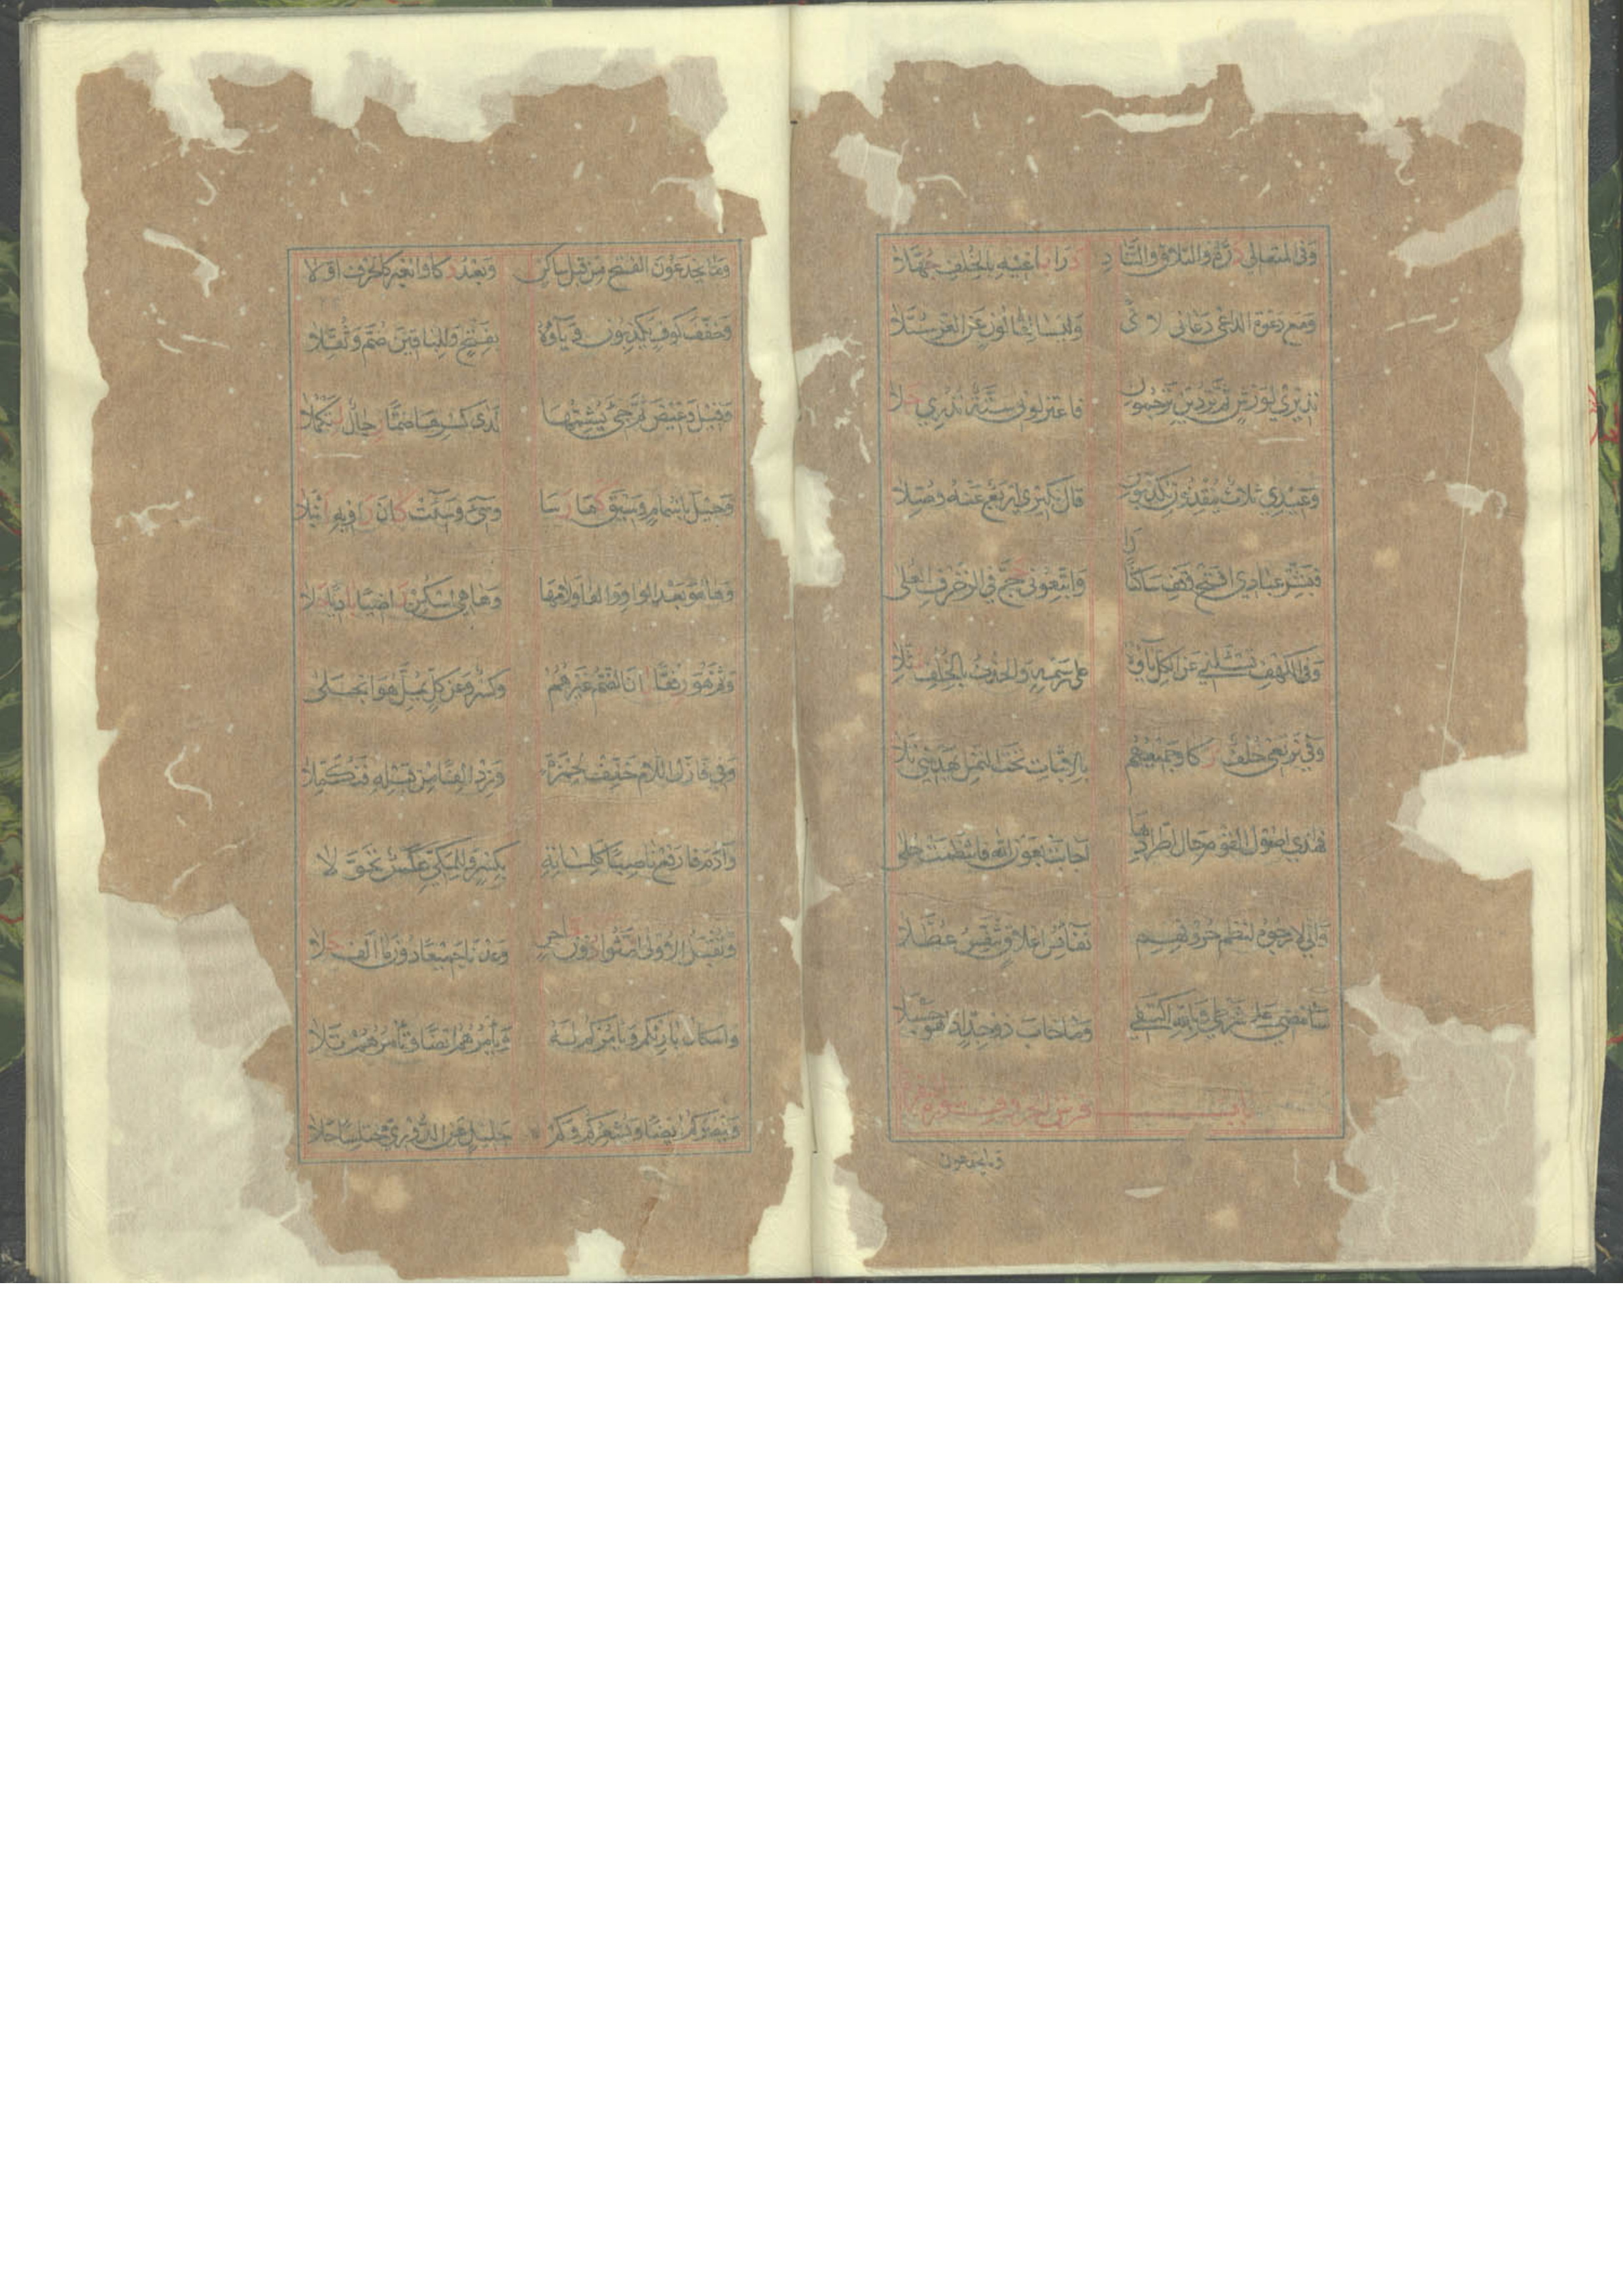 وَفِي المتعالي دُرُّهُ والتلاق والتَّنَادِ دَرَا بَاغِيهِ بِالخُلْفِ جُهَّلَا
وَمَع دَعْوَة الداعي دَعَاني وَلَيْسَا لِقَالُونٍ عَنِ الغُرِّ سُبَّلَا
نَذِيرِي لِوَرْشٍ ثُمَّ تُرْدِينِ تَرْجُمُونِ فَاعْتَزِلُونِ سِتَّةٌ نُذُرِي جَلَا
وَعِيْدِي ثلاث يُنْقِذُونِ يُكَذِّبُونِ قَالَ نَكِيرِي أَرْبَعٌ عَنْهُ وُصِّلَا
فَبَشِّرْ عِبَادِي افْتَحْ وَقِفْ سَاكِنًا وَاتَّبِعُونِي حَجَّ فِي الزخرف العُلَى
وَفِي الكَهْفِ تَسْئَلْنِي عَنِ الكُلِّ يَاؤُهُ عَلَى رَسْمِهِ وَالحَذْفُ بِالخُلْفِ مُثِّلَا
وَفِي نَرْتَعِي خُلْفٌ زكا وجَمِيعُهُم بِالاثْبَاتِ تَحْتَ النَّمْلِ يَهْدِيَنِي تَلَا
فهذي اصول القَوْمِ حَال اطِّرَادِهَا أَجَابَتْ بِعَوْنِ اللهِ فَانْتَظَمَتْ حُلَى
وَاِنِّي لَارْجُوهُ لِنَظْمِ حُرُوفِهِم نَفَائِسَ اعْلَاقٍ تُنَفِّسُ عُطَّلَا
سَامْضِي عَلَى شَرْطِي وَبِاللهِ اكْتَفِي وَمَا خَابَ ذُو جِدٍّ اِذَا هُوَ حَسْبَلَا
باب فرش الحروف سورة
وما يخدعون
وَمَا يَخْدَعُونَ الفَتْحُ مِن قَبْلِ سَاكِنٍ وَبَعْدُ ذَكَا وَالْغَيْرُ كَالْحَرْفِ اوَّلَا
وَخَفَّفَ كُوفٍ يَكْذِبُونَ وَيَاؤُهُ بِفَتْحٍ وَلِلْبَاقِينَ ضُمَّ وَثُقِّلَا
وَقِيلَ وَغِيضَ ثُمَّ جِيءَ يُشِمُّهَا لَدَى كَسْرِهَا ضَمًّا رِجَالٌ لِتَكْمُلَا
وَحِيلَ بِاشْمَامٍ وَسِيقَ كَمَا رَسَا وَسِيءَ وَسِيئَتْ كَانَ رَاوِيهِ انْبَلَا
وَهَا هُوَ بَعْدَ الوَاوِ وَالفَا وَلَامِهَا وَهَا هِيَ اسْكِنْ رَاضِيًا بَارِدًا حَلَا
وَثُمَّ هُوَ رِفْقًا بَانَ وَالضَّمُّ غَيْرُهُمْ وَكَسْرٌ وَعَنْ كُلٍّ يُمِلَّ هُوَ انْجَلَى
وَفِي فَازَلَّ اللَّامَ خَفِّفْ لِحَمْزَةٍ وَزِدْ الِفًا مِن قَبْلِهِ فَتُكَمِّلَا
وَآدَمَ فَارْفَعْ نَاصِبًا كَلِمَاتِهِ بِكَسْرٍ وَلِلْمَكِّيِّ عَكْسٌ تَحَوَّلَا
وَتُقْبَلُ الاولَى انَّثُوا دُونَ حَاجِزٍ وَعَدْنَا جَمِيعًا دُونَ مَا الِفٍ حَلَا
وَاسْكَانُ بَارِئْكُمْ وَيَامُرْكُمُ لَهُ وَيَأْمُرُهُمْ ايْضًا وَتَأْمُرُهُمْ تَلَا
وَيَنْصُرُكُمْ ايْضًا وَيُشْعِرُكُمْ وَكَمْ جَلِيلٍ عَنِ الدُّورِيِّ مُخْتَلِسًا جَلَا